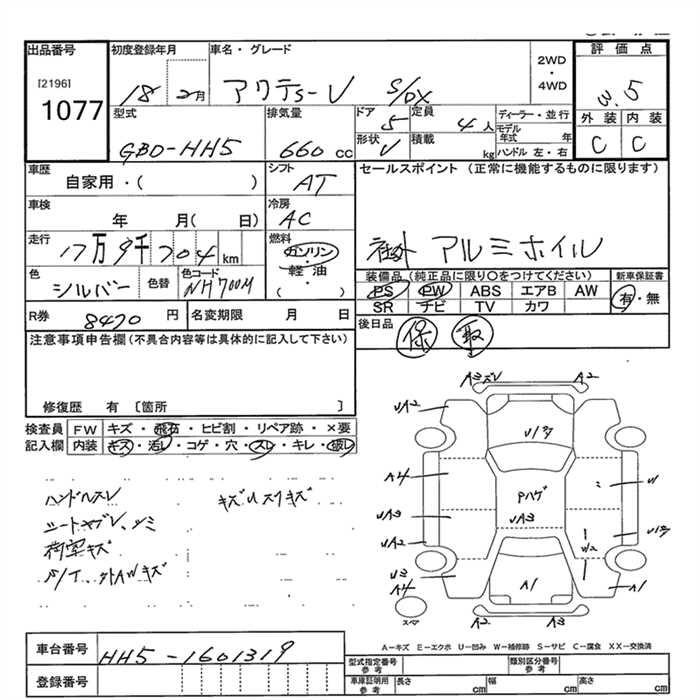 出品番号 初度登録年月 車名・グレード 2WD ・ 4WD 評価点
[2196] 1077 18 2月 アクティーV S/DX 3.5
型式 排気量 ドア 定員 ディーラー・並行 外装 内装
GBD-HH5 660 cc 5 4人 モデル年式 年 C C
形状 V 積載 kg ハンドル 左・右
車歴 シフト セールスポイント (正常に機能するものに限ります)
自家用・( ) AT
車検 冷房
年 月( 日) AC
走行 燃料 社外 アルミホイル
17万9千704km ガソリン・軽油 ( )
色 色替 色コード 装備品 (純正品に限り○をつけてください) 新車保証書
シルバー NH700M PS PW ABS エアB AW 有・無
SR ナビ TV カワ
R券 8470 円 名変期限 月 日 後日品 保 取
注意事項申告欄 (不具合内容等は具体的に記入して下さい)
修復歴 有 〔箇所 〕
検査員 FW キズ・飛石・ヒビ割・リペア跡・×要
記入欄 内装 キズ・汚レ・コゲ・穴・スレ・キレ・破レ
ハンドルスレ キズUスリキズ
シートキズ
荷室キズ
A3 A2
UA2
A4 U1
UA3 Pハゲ UA3
UA2
A4 A1 A1
スペア A2 A3
A-キズ E-エクボ U-凹み W-補修跡 S-サビ C-腐食 XX-交換済
車台番号 HH5-1601319
型式指定番号 参考 類別区分番号 参考
登録番号 車庫証明用 参考 長さ cm 幅 cm 高さ cm